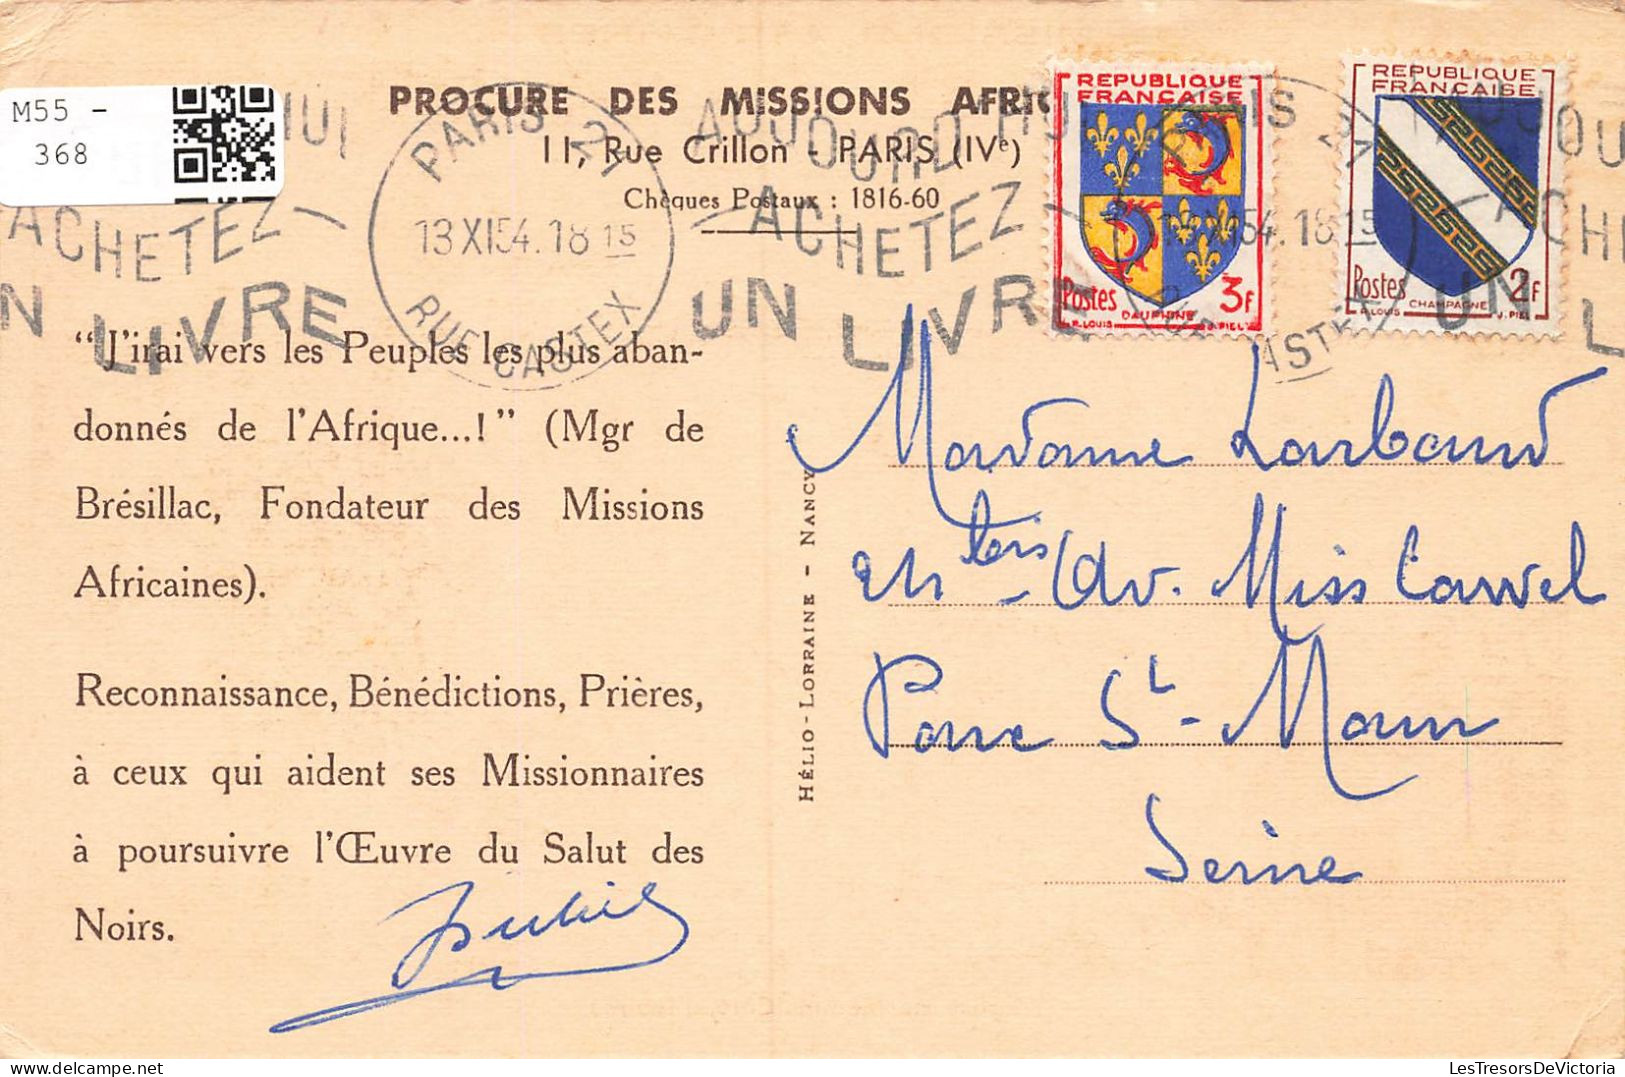 M55 -
368
PROCURE DES MISSIONS AFRIC
11, Rue Crillon - PARIS (IVe)
Chèques Postaux : 1816-60
REPUBLIQUE
FRANÇAISE
Postes 3F
DAUPHINE
R. LOUIS J. PIEL
REPUBLIQUE
FRANÇAISE
Postes 2F
CHAMPAGNE
R. LOUIS J. PIEL
PARIS 12
13 XI 54. 18 15
RUE CASTEX
AUJOURD'HUI
ACHETEZ
UN LIVRE
"J'irai vers les Peuples les plus aban-
donnés de l'Afrique...!" (Mgr de
Brésillac, Fondateur des Missions
Africaines).
Reconnaissance, Bénédictions, Prières,
à ceux qui aident ses Missionnaires
à poursuivre l'Œuvre du Salut des
Noirs.
HÉLIO-LORRAINE - NANCY
Madame Larbaud
ter Av. Miss Cawel
St - Maur
Seine
LesTresorsDeVictoria